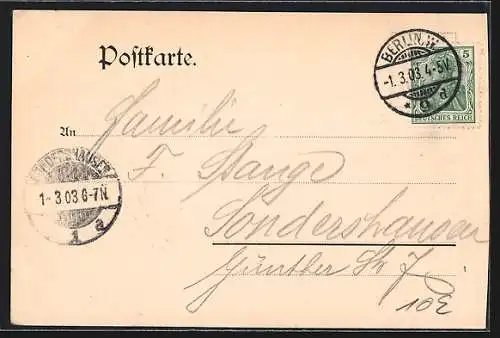 Postkarte.
BERLIN, W.
-1. 3. 03. 4-5V.
* 9 a
5
DEUTSCHES REICH
An
Familie
F. Stange
SONDERSHAUSEN
1- 3.03 6-7N.
1 a
Sondershausen
Günther Str 7